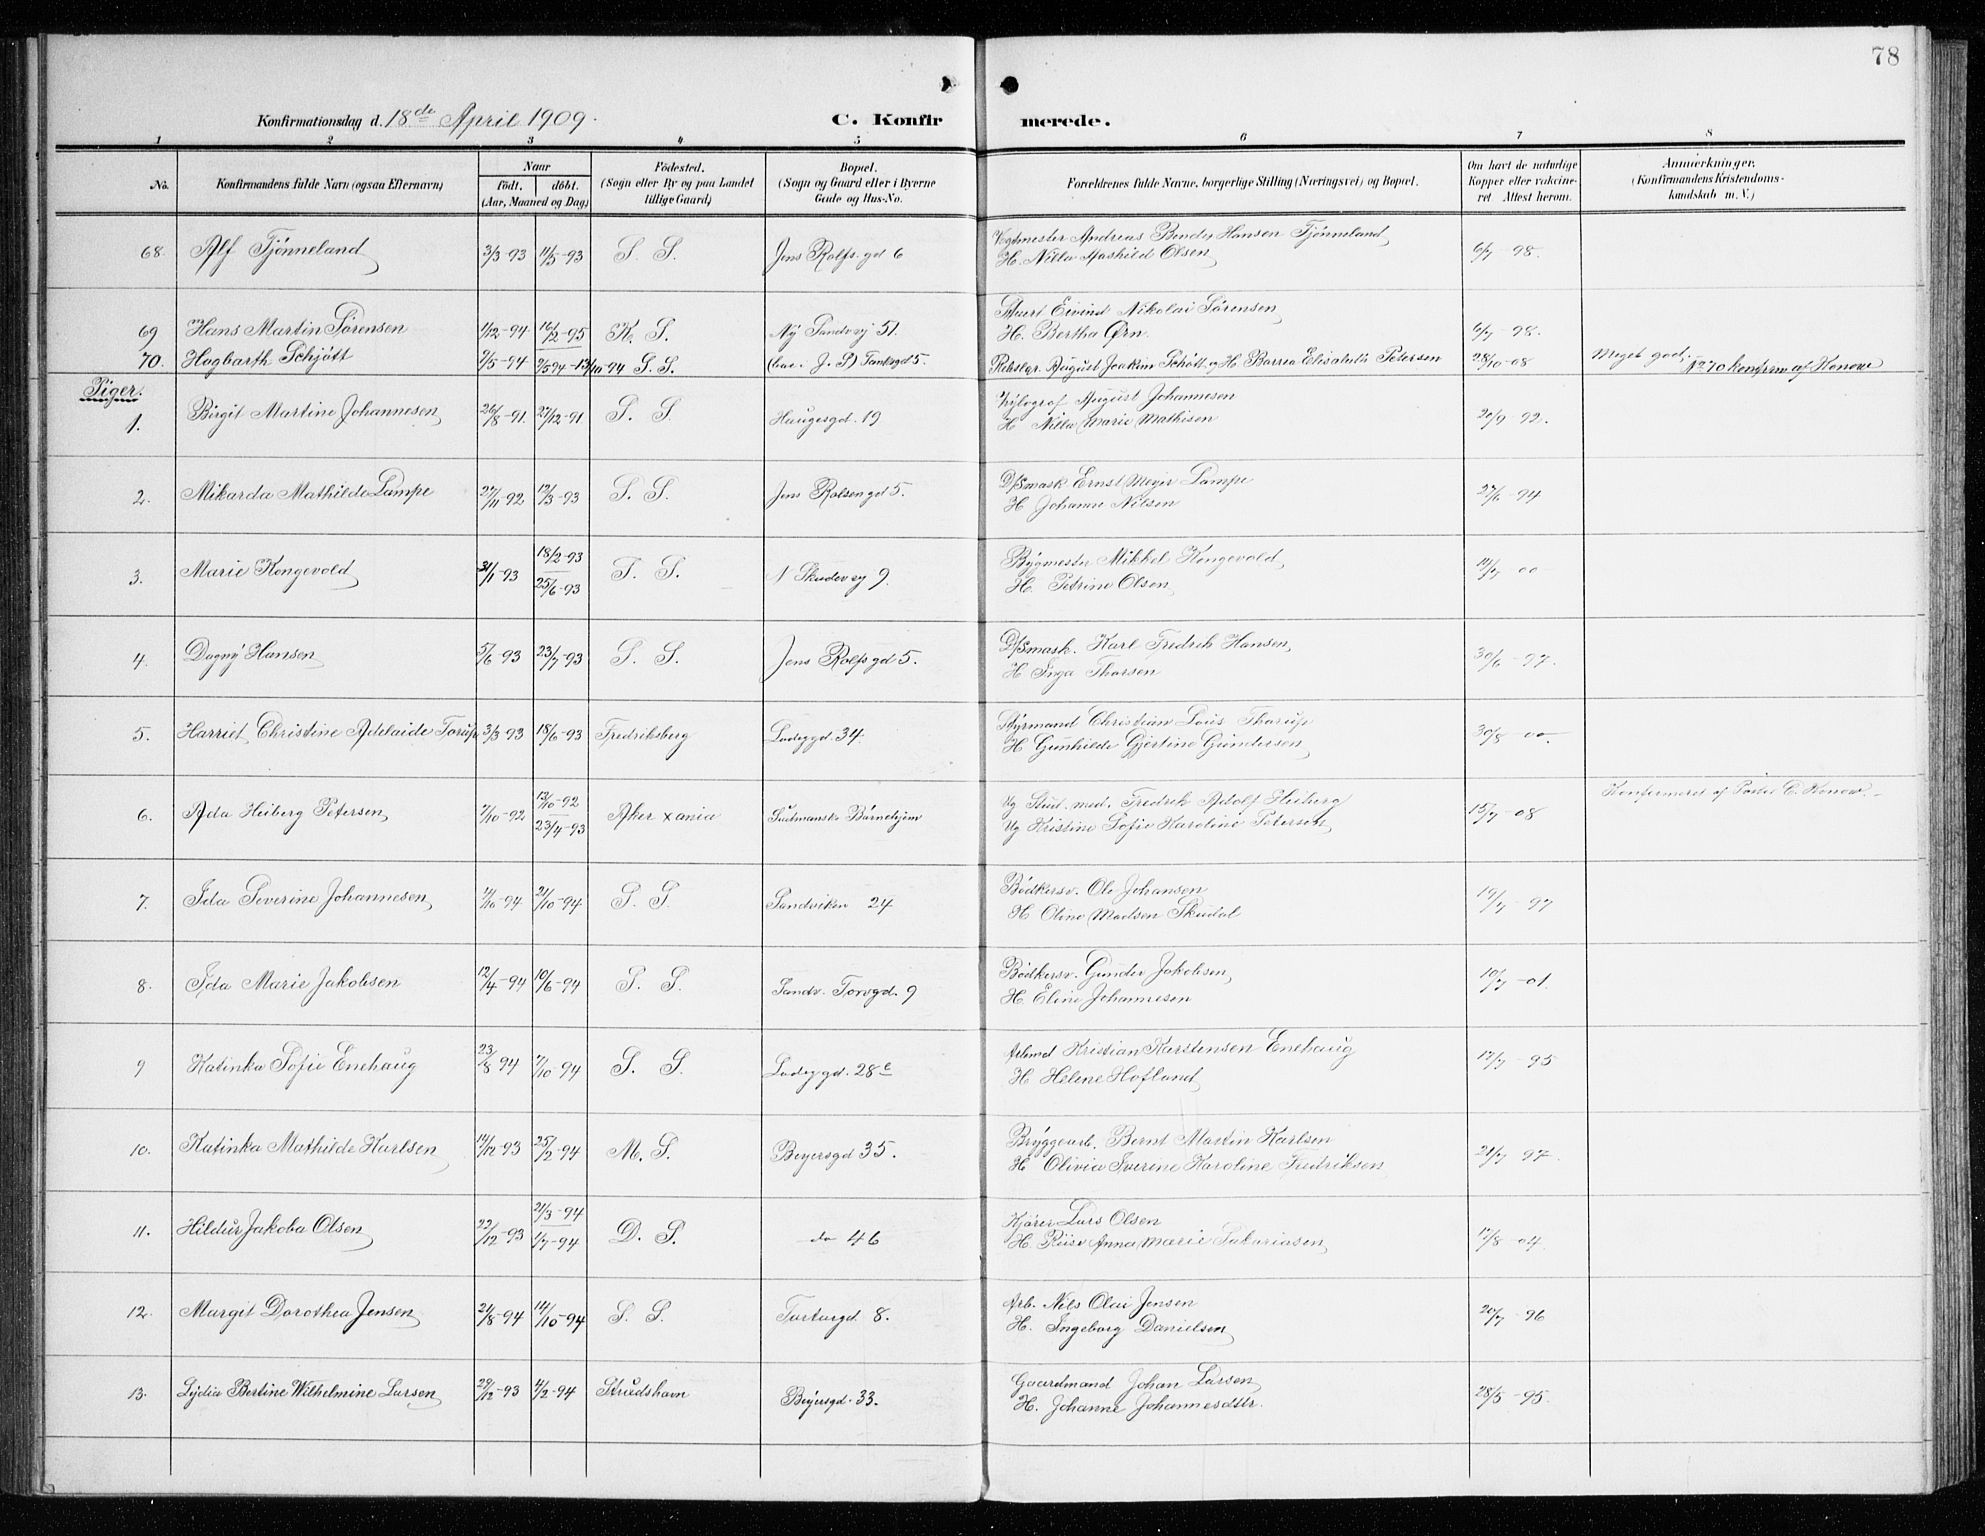 78
Konfirmationsdag d. 18de April 1909.
C. Konfirmerede.
1 2 3 4 5 6 7 8
No. Konfirmandens fulde Navn (ogsaa Efternavn) Naar født. døbt. (Aar, Maaned og Dag) Fødested. (Sogn eller By og paa Landet tillige Gaard) Bopæl. (Sogn og Gaard eller i Byerne Gade og Hus-No. Forældrenes fulde Navne, borgerlige Stilling (Næringsvei) og Bopæl. Om havt de naturlige Kopper eller vakcineret. Attest herom. Anmærkninger. (Konfirmandens Kristendomskundskab m. V.)
68. Alf Tjønneland 3/3 93 11/5-93 S. S. Jens Rolfs. gd 6 Andreas Bender Hansen Tjønneland 6/7 - 98.
H. Nilla Aashild Olsen
69 Hans Martin Sørensen 1/12-94 16/2-95 K. S. Ny Sandvvj 51. Stuert Eivind Nikolai Sørensen 6/7 - 98.
H. Bertha Ørn.
70. Hagbarth Schjött 7/5-94 S. S. Tanksgd 5. August Joakim Schött og H. Barrea Elisabeth Petersen 28/10-08 Meget god. No 70 konfirm af Konow
Piger.
1. Birgit Martine Johannesen 26/8-91. 27/12-91 S. S. Haugesgd. 19 Xylograf August Johannesen 20/9 92.
H Nilla Marie Mathisen
2. Mikarda Mathilde Lampe 27/11-92 12/3-93 S. S. Jens Rolsen gd 5. D/Smask Ernst Meyer Lampe 27/6-94
H Johanne Nilsen
3. Marie Kongevold 31/1-93 18/2-93 25/6-93 S. S. N Skudevvy 9. Bygmester Mikkel Kongevold 14/7 00
H. Petrine Olsen
4. Dagny Hansen 5/6 93 23/7-93 S. S. Jens Rolfsgd 5. D/Smask. Karl Fredrik Hansen 30/6-97.
H Inga Thorsen
5. Harriet Christine Adelaide Torup 3/3 93 18/6-93 Fredriksberg Ladeggd. 34. Styrmand Christian Lous Thorup 30/8-00.
H Gunhilde Gjertine Gundersen
6. Ada Heiberg Petersen 7/10-92 13/10-92 23/4-93 Aker Xania Sudmanske Børnehjem Ug Stud. med. Fredrik Adolf Heiberg 15/7-08 Konfirmeret af Pastor C. Konow.
Ug Kristine Sofie Karoline Petersen
7. Ida Severine Johannesen 14/10-94 21/10-94 S. S. Sandviken 24 Bødkersv. Ole Johansen 19/7-97
H Oline Madsen Skudal
8. Ida Marie Jakobsen 12/4-94 10/6-94 S. S. Sandv. Torvgd. 9 Bødkersv. Gunder Jakobsen 10/7-01.
H. Eline Johannesen
9 Katinka Sofie Enehaug 23/8 94 7/10-94 S. S. Ladeggd. 28c Arbmd Kristian Karstensen Enehaug 17/7-95
H Helene Hofland
10. Katinka Mathilde Karlsen 14/12-93 25/2-94 M. S. Beyersgd 35. Bryggearb. Bernt Martin Karlsen 21/7 97.
H Olivia Severine Karoline Fredriksen
11. Hildur Jakoba Olsen 22/12-93 21/3-94 1/7-94 D. S. do 46 Kjører Lars Olsen 17/8-04.
H. Anna Marie Sakariasen
12. Margit Dorothea Jensen 21/8-94 14/10-94 S. S. Tartargd 8. Arb. Nils Olai Jensen 20/7-96
H. Ingeborg Danielsen
13. Lydia Bertine Wilhelmine Larsen 29/12-93 4/2-94 Strudshavn Beyersgd. 33. Gaardmand Johan Larsen 28/5-95.
H. Johanne Johannesdtr.